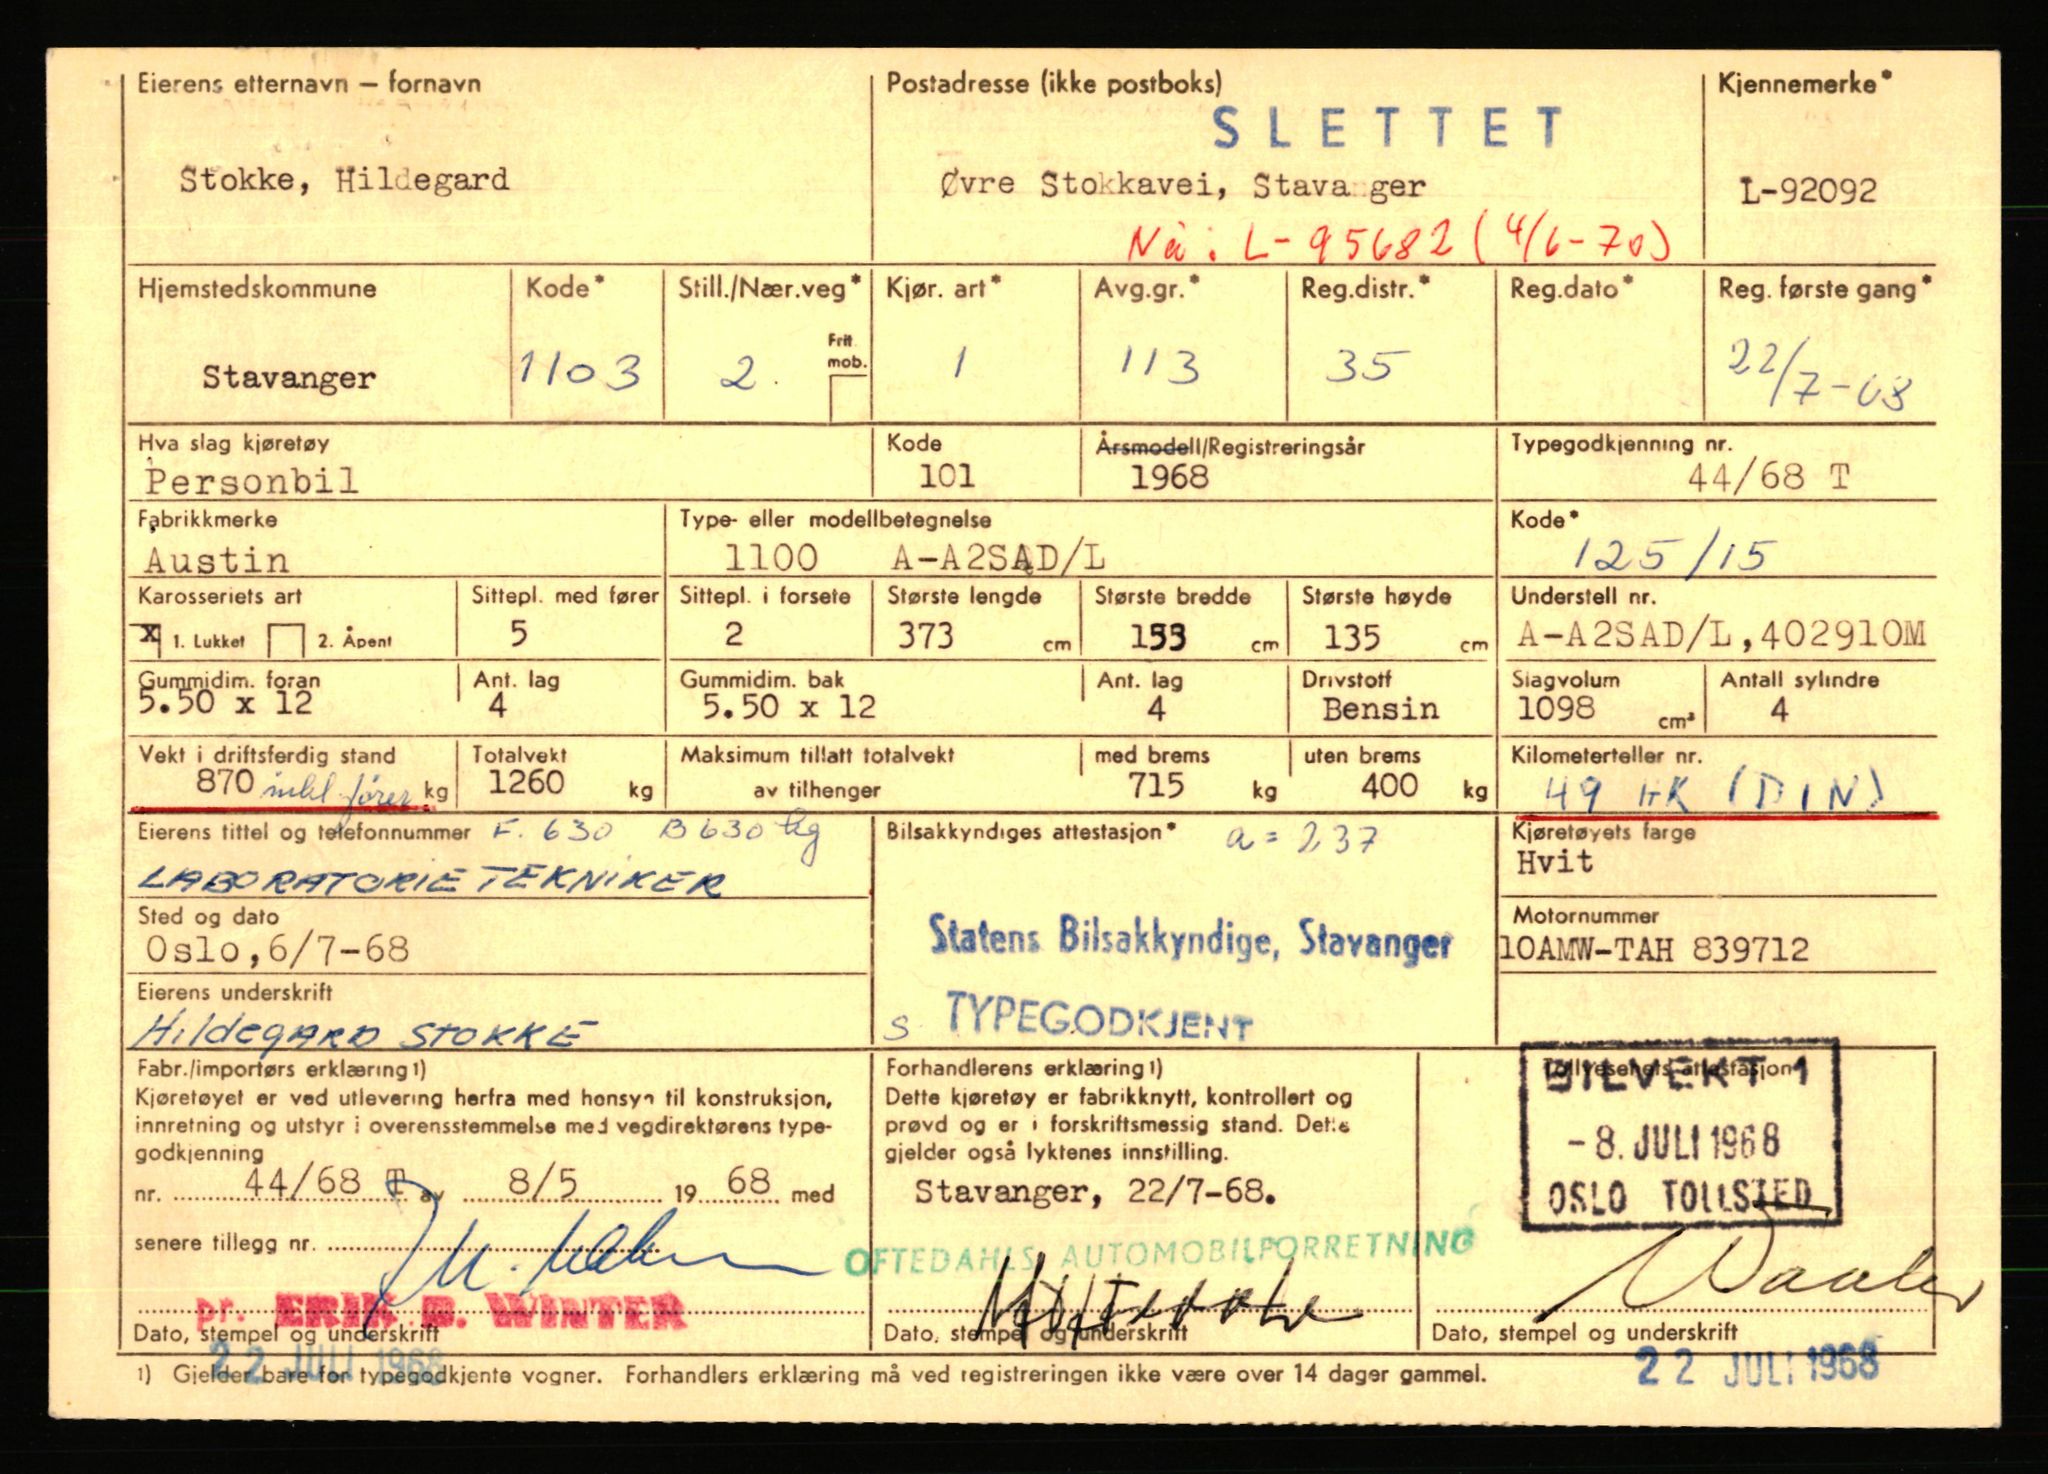 Eierens etternavn – fornavn
Postadresse (ikke postboks)
Kjennemerke*
SLETTET
Stokke, Hildegard
Øvre Stokkavei, Stavanger
L-92092
Nå: L-95682 (4/6-70)
Hjemstedskommune
Kode*
Still./Nær.veg*
Kjør. art*
Avg.gr.*
Reg.distr.*
Reg.dato*
Reg. første gang*
Fritt mob.
Stavanger
1103
2
1
113
35
22/7-68
Hva slag kjøretøy
Kode
Årsmodell/Registreringsår
Typegodkjenning nr.
Personbil
101
1968
44/68 T
Fabrikkmerke
Type- eller modellbetegnelse
Kode*
Austin
1100 A-A2SAD/L
125/15
Karosseriets art
Sittepl. med fører
Sittepl. i forsete
Største lengde
Største bredde
Største høyde
Understell nr.
x 1. Lukket 2. Åpent
5
2
373 cm
153 cm
135 cm
A-A2SAD/L,402910M
Gummidim. foran
Ant. lag
Gummidim. bak
Ant. lag
Drivstoff
Slagvolum
Antall sylindre
5.50 x 12
4
5.50 x 12
4
Bensin
1098 cm³
4
Vekt i driftsferdig stand
Totalvekt
Maksimum tillatt totalvekt
med brems
uten brems
Kilometerteller nr.
870 inkl fører kg
1260 kg
av tilhenger
715 kg
400 kg
49 HK (DIN)
Eierens tittel og telefonnummer F. 630 B 630 kg
Bilsakkyndiges attestasjon* a = 237
Kjøretøyets farge
LABORATORIETEKNIKER
Hvit
Sted og dato
Statens Bilsakkyndige, Stavanger
Motornummer
Oslo,6/7-68
10AMW-TAH 839712
Eierens underskrift
S TYPEGODKJENT
Hildegard STOKKE
Fabr./importørs erklæring1)
Kjøretøyet er ved utlevering herfra med hensyn til konstruksjon,
innretning og utstyr i overensstemmelse med vegdirektørens type-
godkjenning
nr. 44/68 T av 8/5 1968 med
senere tillegg nr.
pr. ERIK B. WINTER
Dato, stempel og underskrift
22 JULI 1968
Forhandlerens erklæring1)
Dette kjøretøy er fabrikknytt, kontrollert og
prøvd og er i forskriftsmessig stand. Dette
gjelder også lyktenes innstilling.
Stavanger, 22/7-68.
OFTEDAHLS AUTOMOBILFORRETNING
Dato, stempel og underskrift
Tollvesenets attestasjon
BILVEKT 1
-8. JULI 1968
OSLO TOLLSTED
Dato, stempel og underskrift
22 JULI 1968
1) Gjelder bare for typegodkjente vogner. Forhandlers erklæring må ved registreringen ikke være over 14 dager gammel.